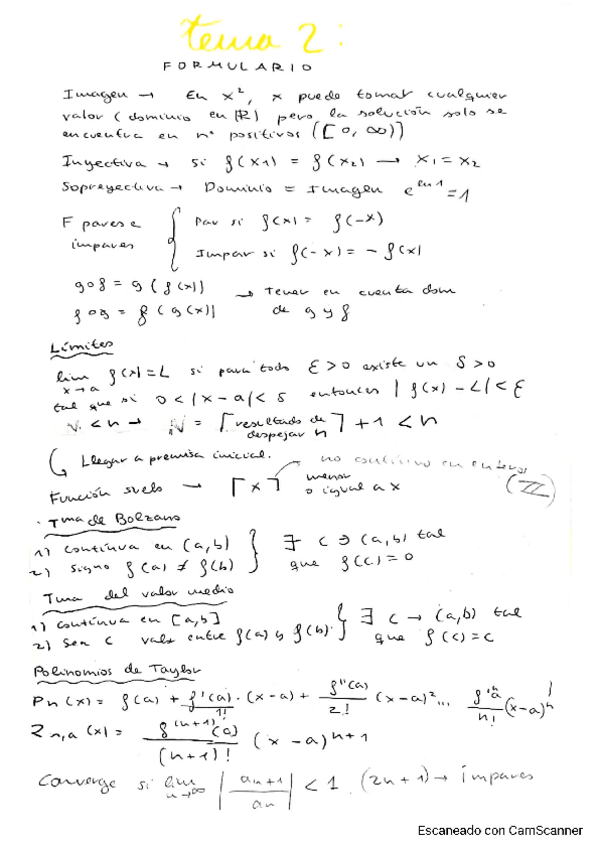 tema 2:
FORMULARIO
Imagen → En x², x puede tomar cualquier
valor (dominio en ℝ) pero la solución solo se
encuentra en nº positivos ([0, ∞))
Inyectiva → si f(x1) = f(x2) → x1 = x2
Sopreyectiva → Dominio = Imagen e^ln 1 = 1
F pares e impares { Par si f(x) = f(-x)
Impar si f(-x) = -f(x)
g∘f = g(f(x)) → Tener en cuenta dom
f∘g = f(g(x)) de g y f
Límites
lim x→a f(x) = L si para todo ε > 0 existe un δ > 0
tal que si 0 < |x - a| < δ entonces |f(x) - L| < ε
N < n → N = ⌈resultado de despejar n⌉ + 1 < n
Llegar a premisa inicial.
no continuo en enteros (ℤ)
Función suelo → ⌈x⌉ menor o igual a x
Tma de Bolzano
1) continua en (a,b) } ∃ c ∋ (a,b) tal
2) signo f(a) ≠ f(b) que f(c) = 0
Tma del valor medio
1) continua en [a,b] } ∃ c → (a,b) tal
2) Sea c valor entre f(a) y f(b). que f(c) = c
Polinomios de Taylor
Pn(x) = f(a) + f'(a)/1! · (x-a) + f''(a)/2! (x-a)²... fⁿa/n! (x-a)ⁿ
Rn,a(x) = f^(n+1)(a)/(n+1)! (x-a)^n+1
Converge si lim n→∞ |an+1/an| < 1 (2n+1) → impares
Escaneado con CamScanner